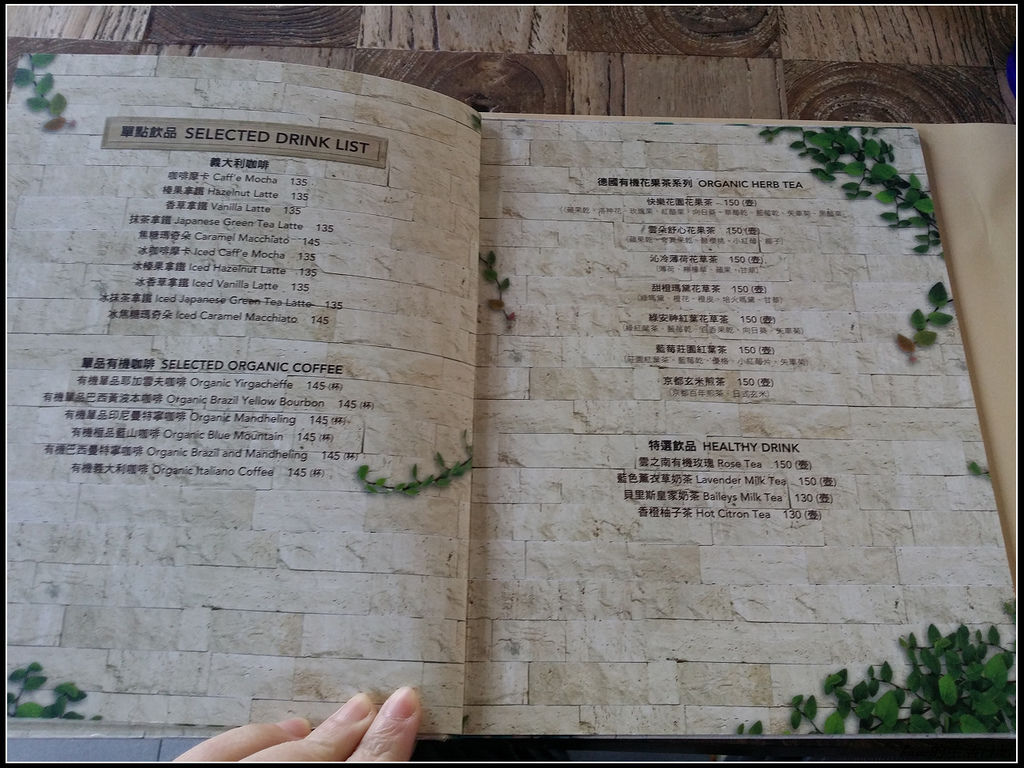 單點飲品 SELECTED DRINK LIST
義大利咖啡
咖啡摩卡 Caff'e Mocha 135
榛果拿鐵 Hazelnut Latte 135
香草拿鐵 Vanilla Latte 135
抹茶拿鐵 Japanese Green Tea Latte 135
焦糖瑪奇朵 Caramel Macchiato 145
冰咖啡摩卡 Iced Caff'e Mocha 135
冰榛果拿鐵 Iced Hazelnut Latte 135
冰香草拿鐵 Iced Vanilla Latte 135
冰抹茶拿鐵 Iced Japanese Green Tea Latte 135
冰焦糖瑪奇朵 Iced Caramel Macchiato 145
單品有機咖啡 SELECTED ORGANIC COFFEE
有機單品耶加雪夫咖啡 Organic Yirgacheffe 145 (杯)
有機單品巴西黃波本咖啡 Organic Brazil Yellow Bourbon 145 (杯)
有機單品印尼曼特寧咖啡 Organic Mandheling 145 (杯)
有機極品藍山咖啡 Organic Blue Mountain 145 (杯)
有機巴西曼特寧咖啡 Organic Brazil and Mandheling 145 (杯)
有機義大利咖啡 Organic Italiano Coffee 145 (杯)
德國有機花果茶系列 ORGANIC HERB TEA
快樂花園花果茶 150 (壺)
(蘋果乾、洛神花、玫瑰果、紅醋栗、向日葵、草莓乾、藍莓乾、矢車菊、黑醋栗)
雲朵舒心花果茶 150 (壺)
沁冷薄荷花草茶 150 (壺)
(薄荷、檸檬草、蘋果、甘草)
甜橙瑪黛花草茶 150 (壺)
(綠瑪黛、橙花、橙皮、焙火瑪黛、甘草)
綠安神紅葉花草茶 150 (壺)
(綠紅葉茶、藍莓乾、百香果乾、向日葵、矢車菊)
藍莓莊園紅葉茶 150 (壺)
(莊園紅葉茶、藍莓乾、優格、小紅莓片、矢車菊)
京都玄米煎茶 150 (壺)
(京都百年煎茶、日式玄米)
特選飲品 HEALTHY DRINK
雲之南有機玫瑰 Rose Tea 150 (壺)
藍色薰衣草奶茶 Lavender Milk Tea 150 (壺)
貝里斯皇家奶茶 Baileys Milk Tea 130 (壺)
香橙柚子茶 Hot Citron Tea 130 (壺)